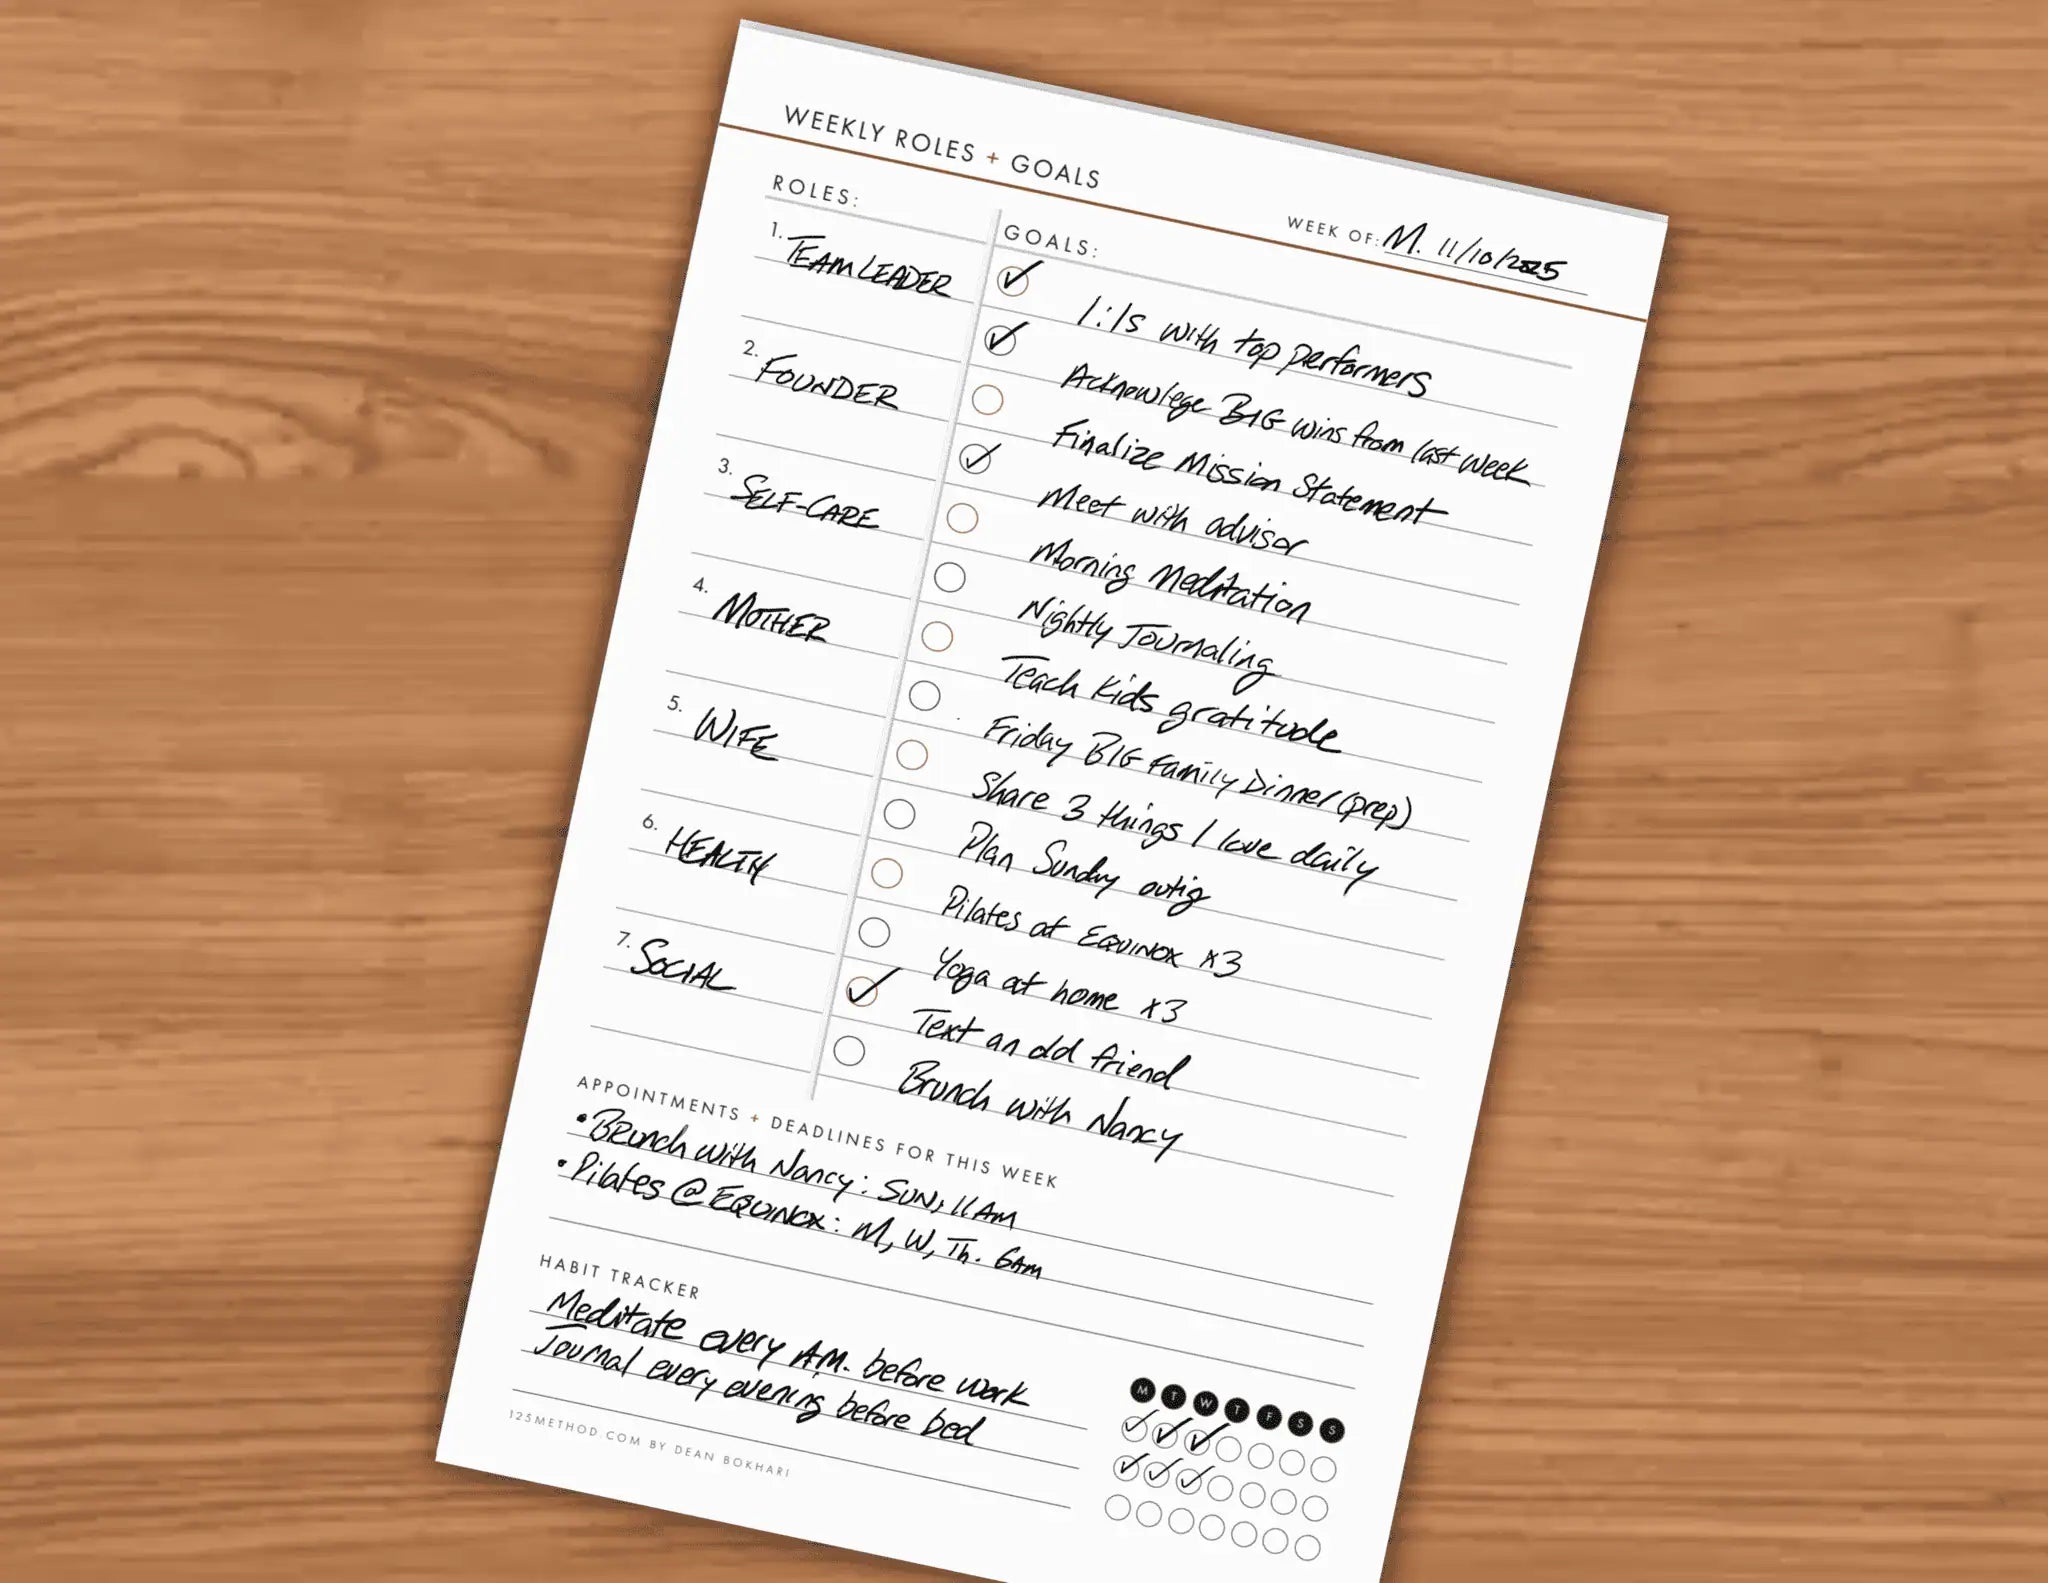 WEEKLY ROLES + GOALS
WEEK OF: M. 11/10/2025
ROLES:
1. TEAM LEADER
2. FOUNDER
3. SELF-CARE
4. MOTHER
5. WIFE
6. HEALTH
7. SOCIAL
GOALS:
1:1s with top performers
Acknowlege BIG wins from last week
Finalize Mission Statement
Meet with advisor
Morning Meditation
Nightly Journaling
Teach kids gratitude
Friday BIG Family Dinner (prep)
Share 3 things I love daily
Plan Sunday outig
Pilates at EQUINOX x3
Yoga at home x3
Text an old friend
Brunch with Nancy
APPOINTMENTS + DEADLINES FOR THIS WEEK
• Brunch with Nancy: SUN, 11AM
• Pilates @ EQUINOX: M, W, Th. 6AM
HABIT TRACKER
M T W T F S S
Meditate every A.M. before work
Journal every evening before bed
125METHOD.COM BY DEAN BOKHARI